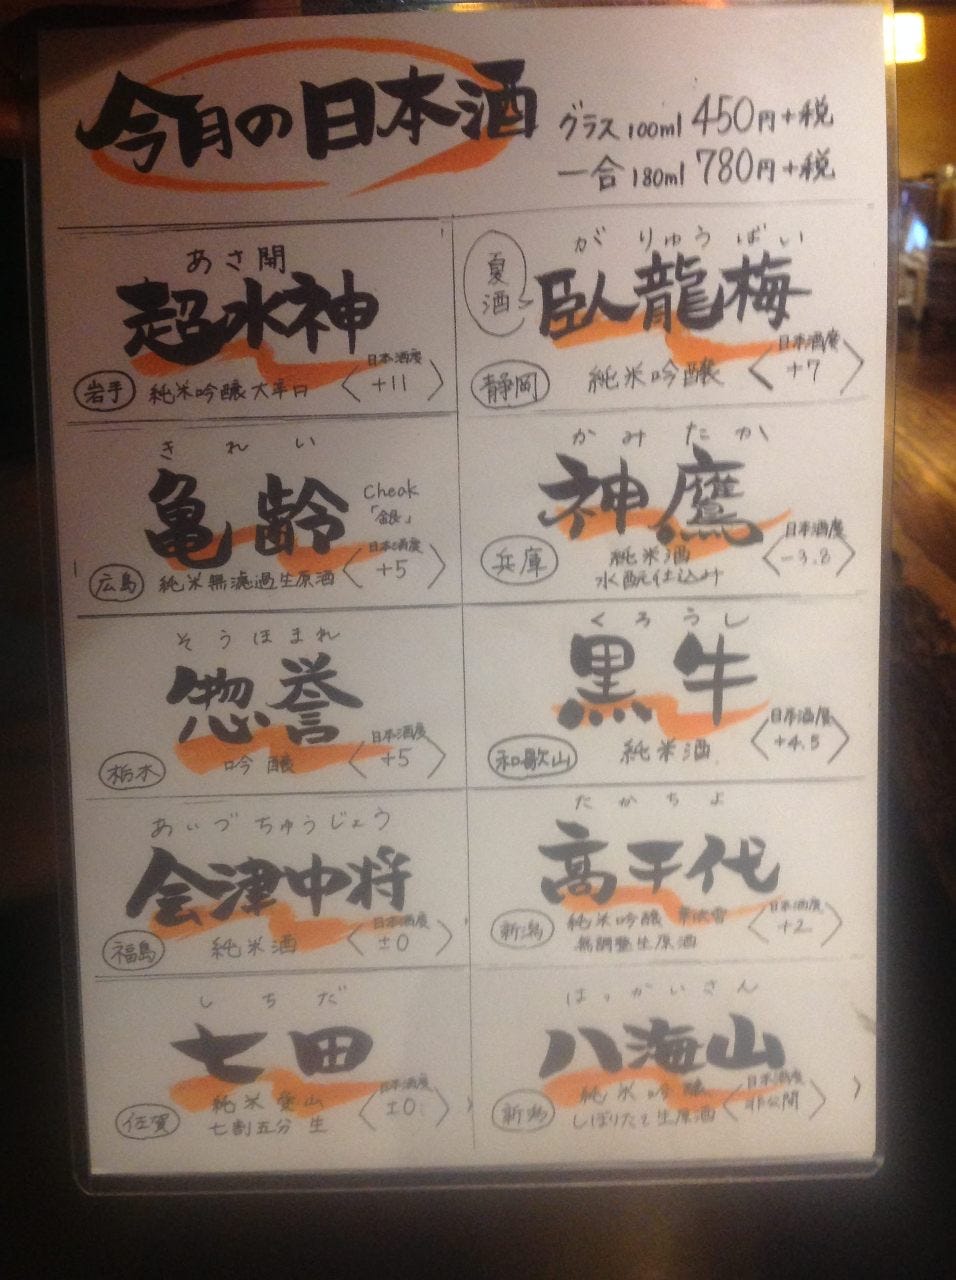 今月の日本酒
グラス 100ml 450円+税
一合 180ml 780円+税
あさ開
超水神
岩手
純米吟醸 大辛口
日本酒度
+11
夏酒
がりゅうばい
臥龍梅
静岡
純米吟醸
日本酒度
+7
きれい
亀齢
Cheak
「銀」
広島
純米無濾過生原酒
日本酒度
+5
かみたか
神鷹
兵庫
純米酒
水酛仕込み
日本酒度
-3.8
そうほまれ
惣誉
栃木
吟醸
日本酒度
+5
くろうし
黒牛
和歌山
純米酒
日本酒度
+4.5
あいづちゅうじょう
会津中将
福島
純米酒
日本酒度
±0
たかちよ
高千代
新潟
純米吟醸
無調整生原酒
日本酒度
+2
しちだ
七田
佐賀
純米 愛山
七割五分 生
日本酒度
±0
はっかいさん
八海山
新潟
純米吟醸
しぼりたて生原酒
日本酒度
非公開